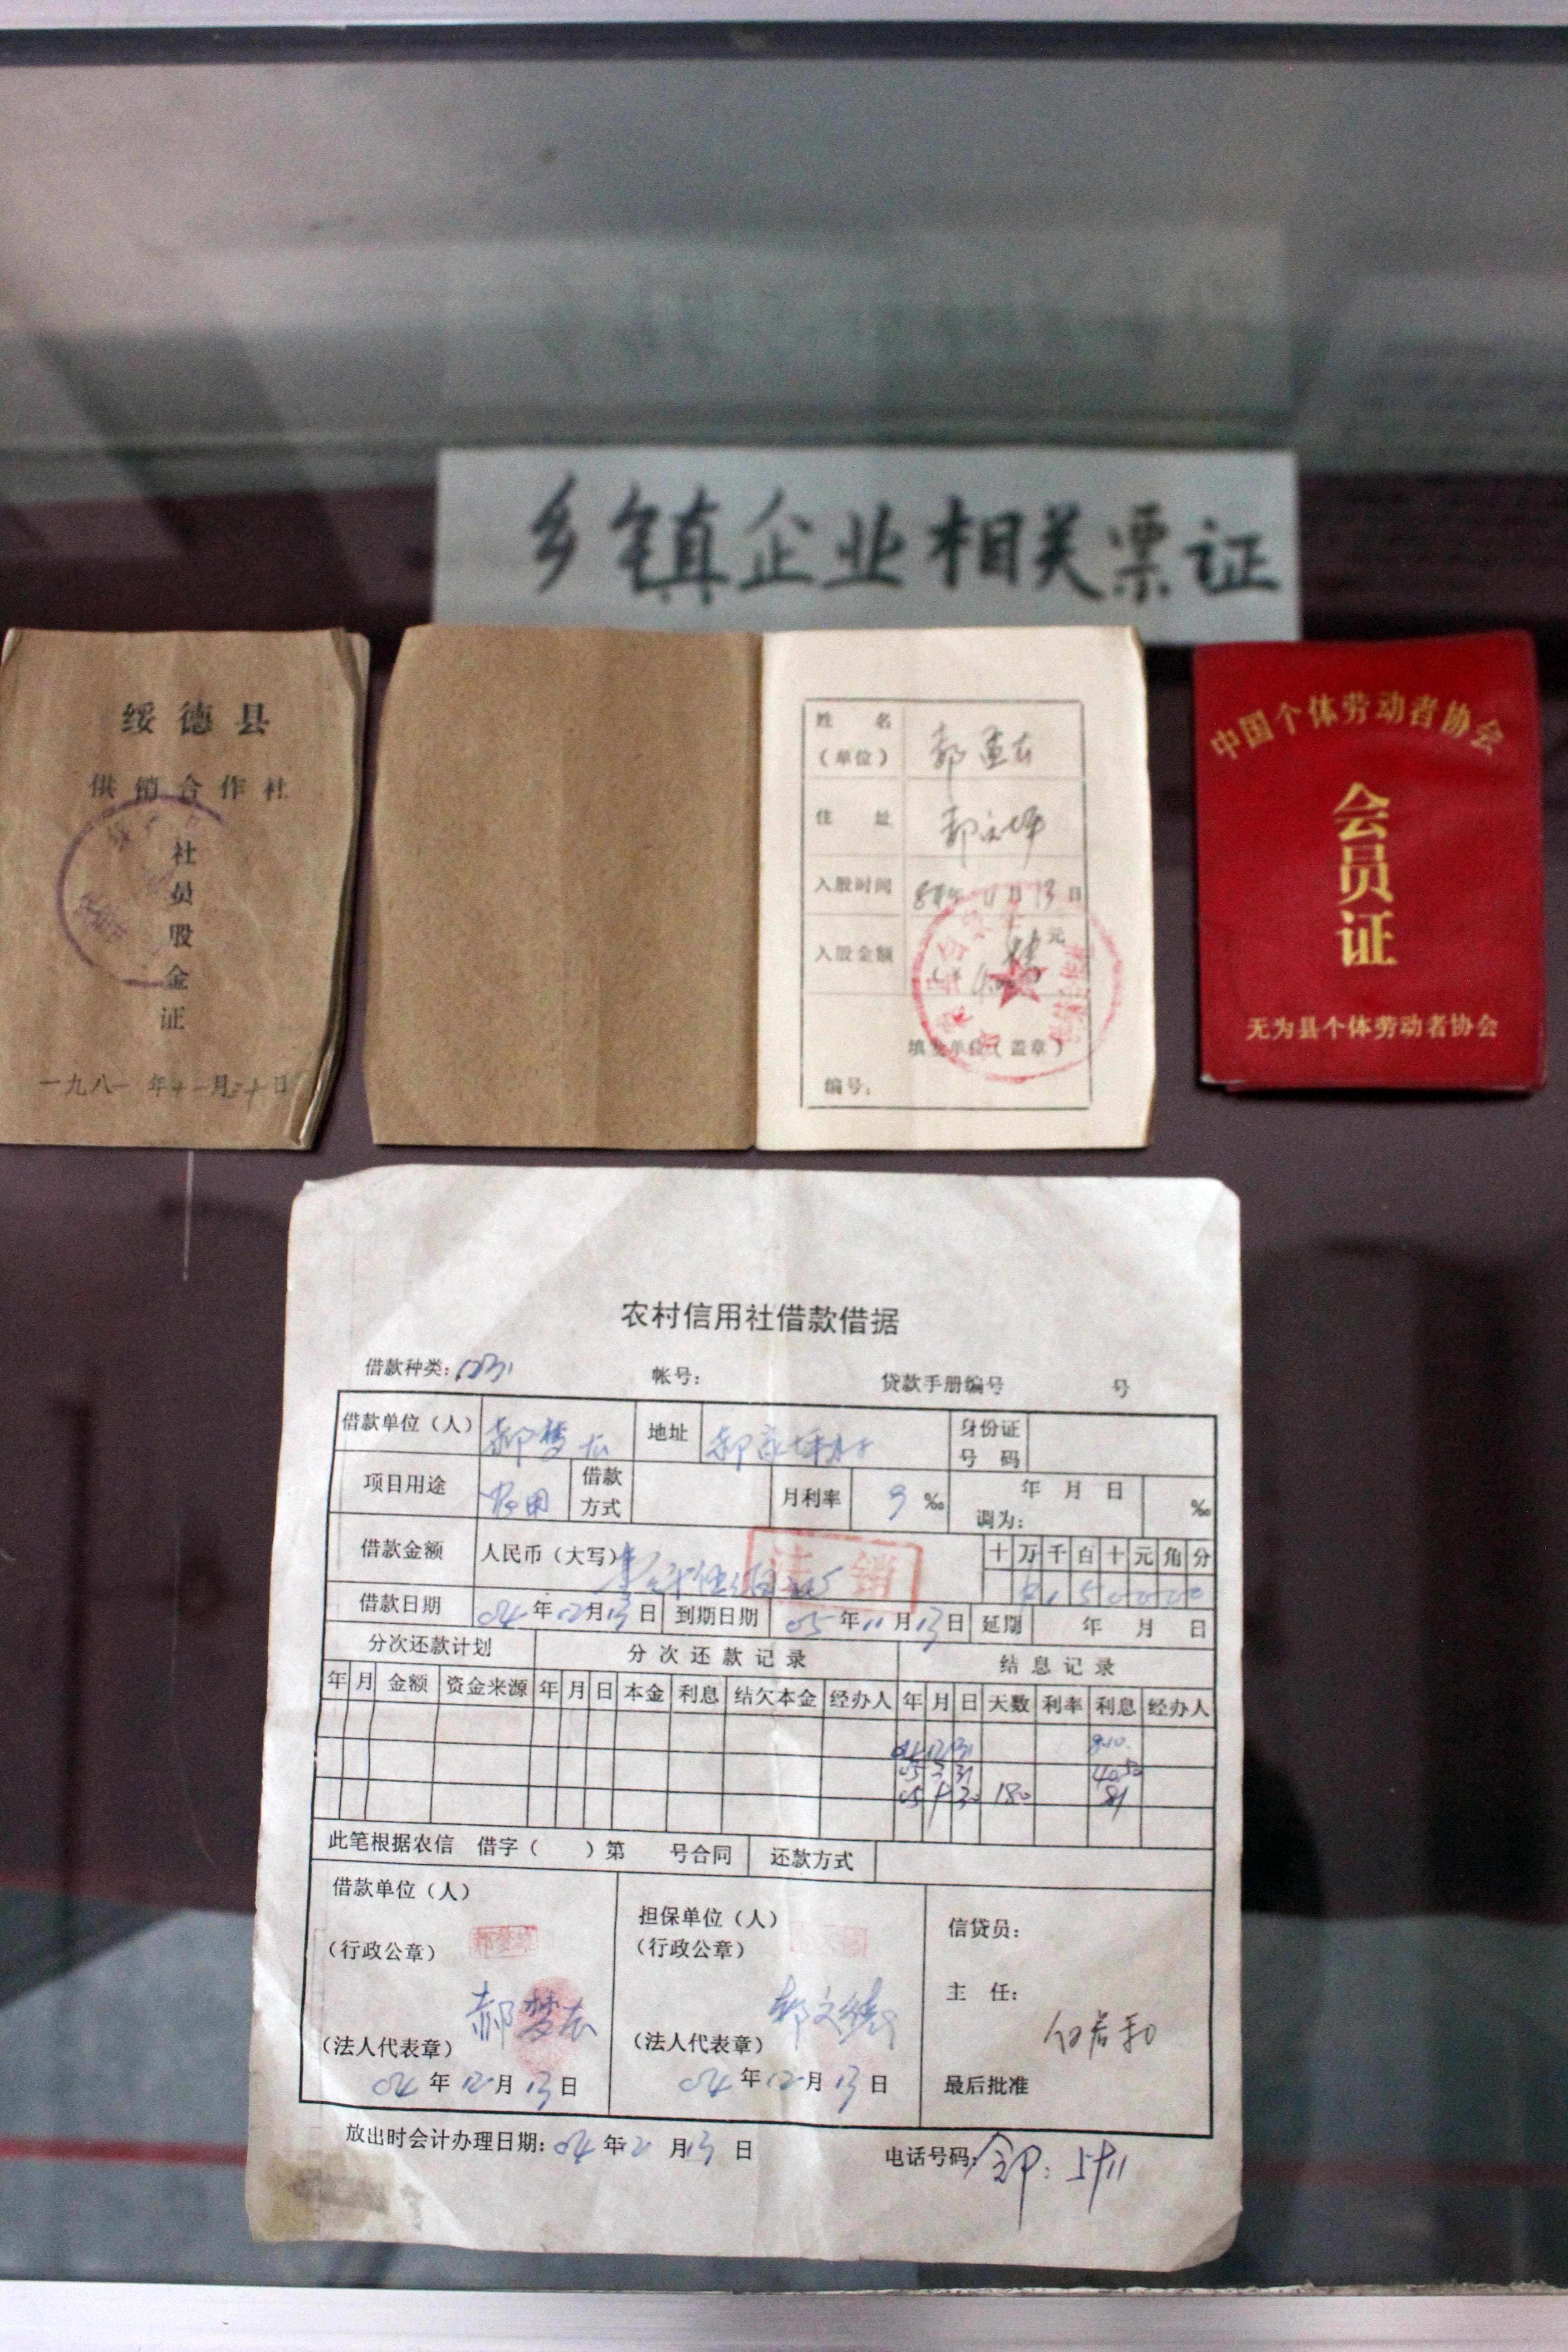 乡镇企业相关票证
绥德县
供销合作社
社员股金证
一九八一年十一月三十日
姓名
(单位)
住址
入股时间 年 11月13日
入股金额 元
填发单位(盖章)
编号:
中国个体劳动者协会
会员证
无为县个体劳动者协会
农村信用社借款借据
借款种类: 帐号: 贷款手册编号 号
借款单位(人) 郝梦 地址 郝家坪村 身份证号码
项目用途 借款方式 月利率 9‰ 年 月 日 调为: ‰
借款金额 人民币(大写) 十万千百十元角分
注销
借款日期 04年12月13日 到期日期 05年11月13日 延期 年 月 日
分次还款计划 分次还款记录 结息记录
年 月 金额 资金来源 年 月 日 本金 利息 结欠本金 经办人 年 月 日 天数 利率 利息 经办人
04 12 31 8.10
05 3 31 40.50
05 30 180 81
此笔根据农信 借字( )第 号合同 还款方式
借款单位(人) 担保单位(人) 信贷员:
(行政公章) (行政公章)
主任:
(法人代表章) 郝梦 (法人代表章)
04年12月13日 04年12月13日 最后批准
放出时会计办理日期: 04年12月13日 电话号码: